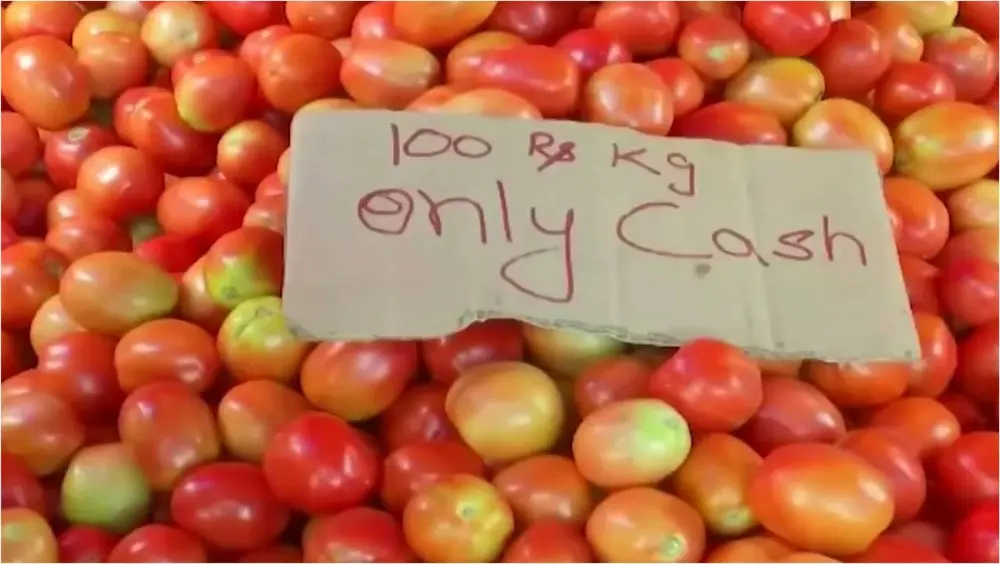 100 Rs Kg
Only Cash